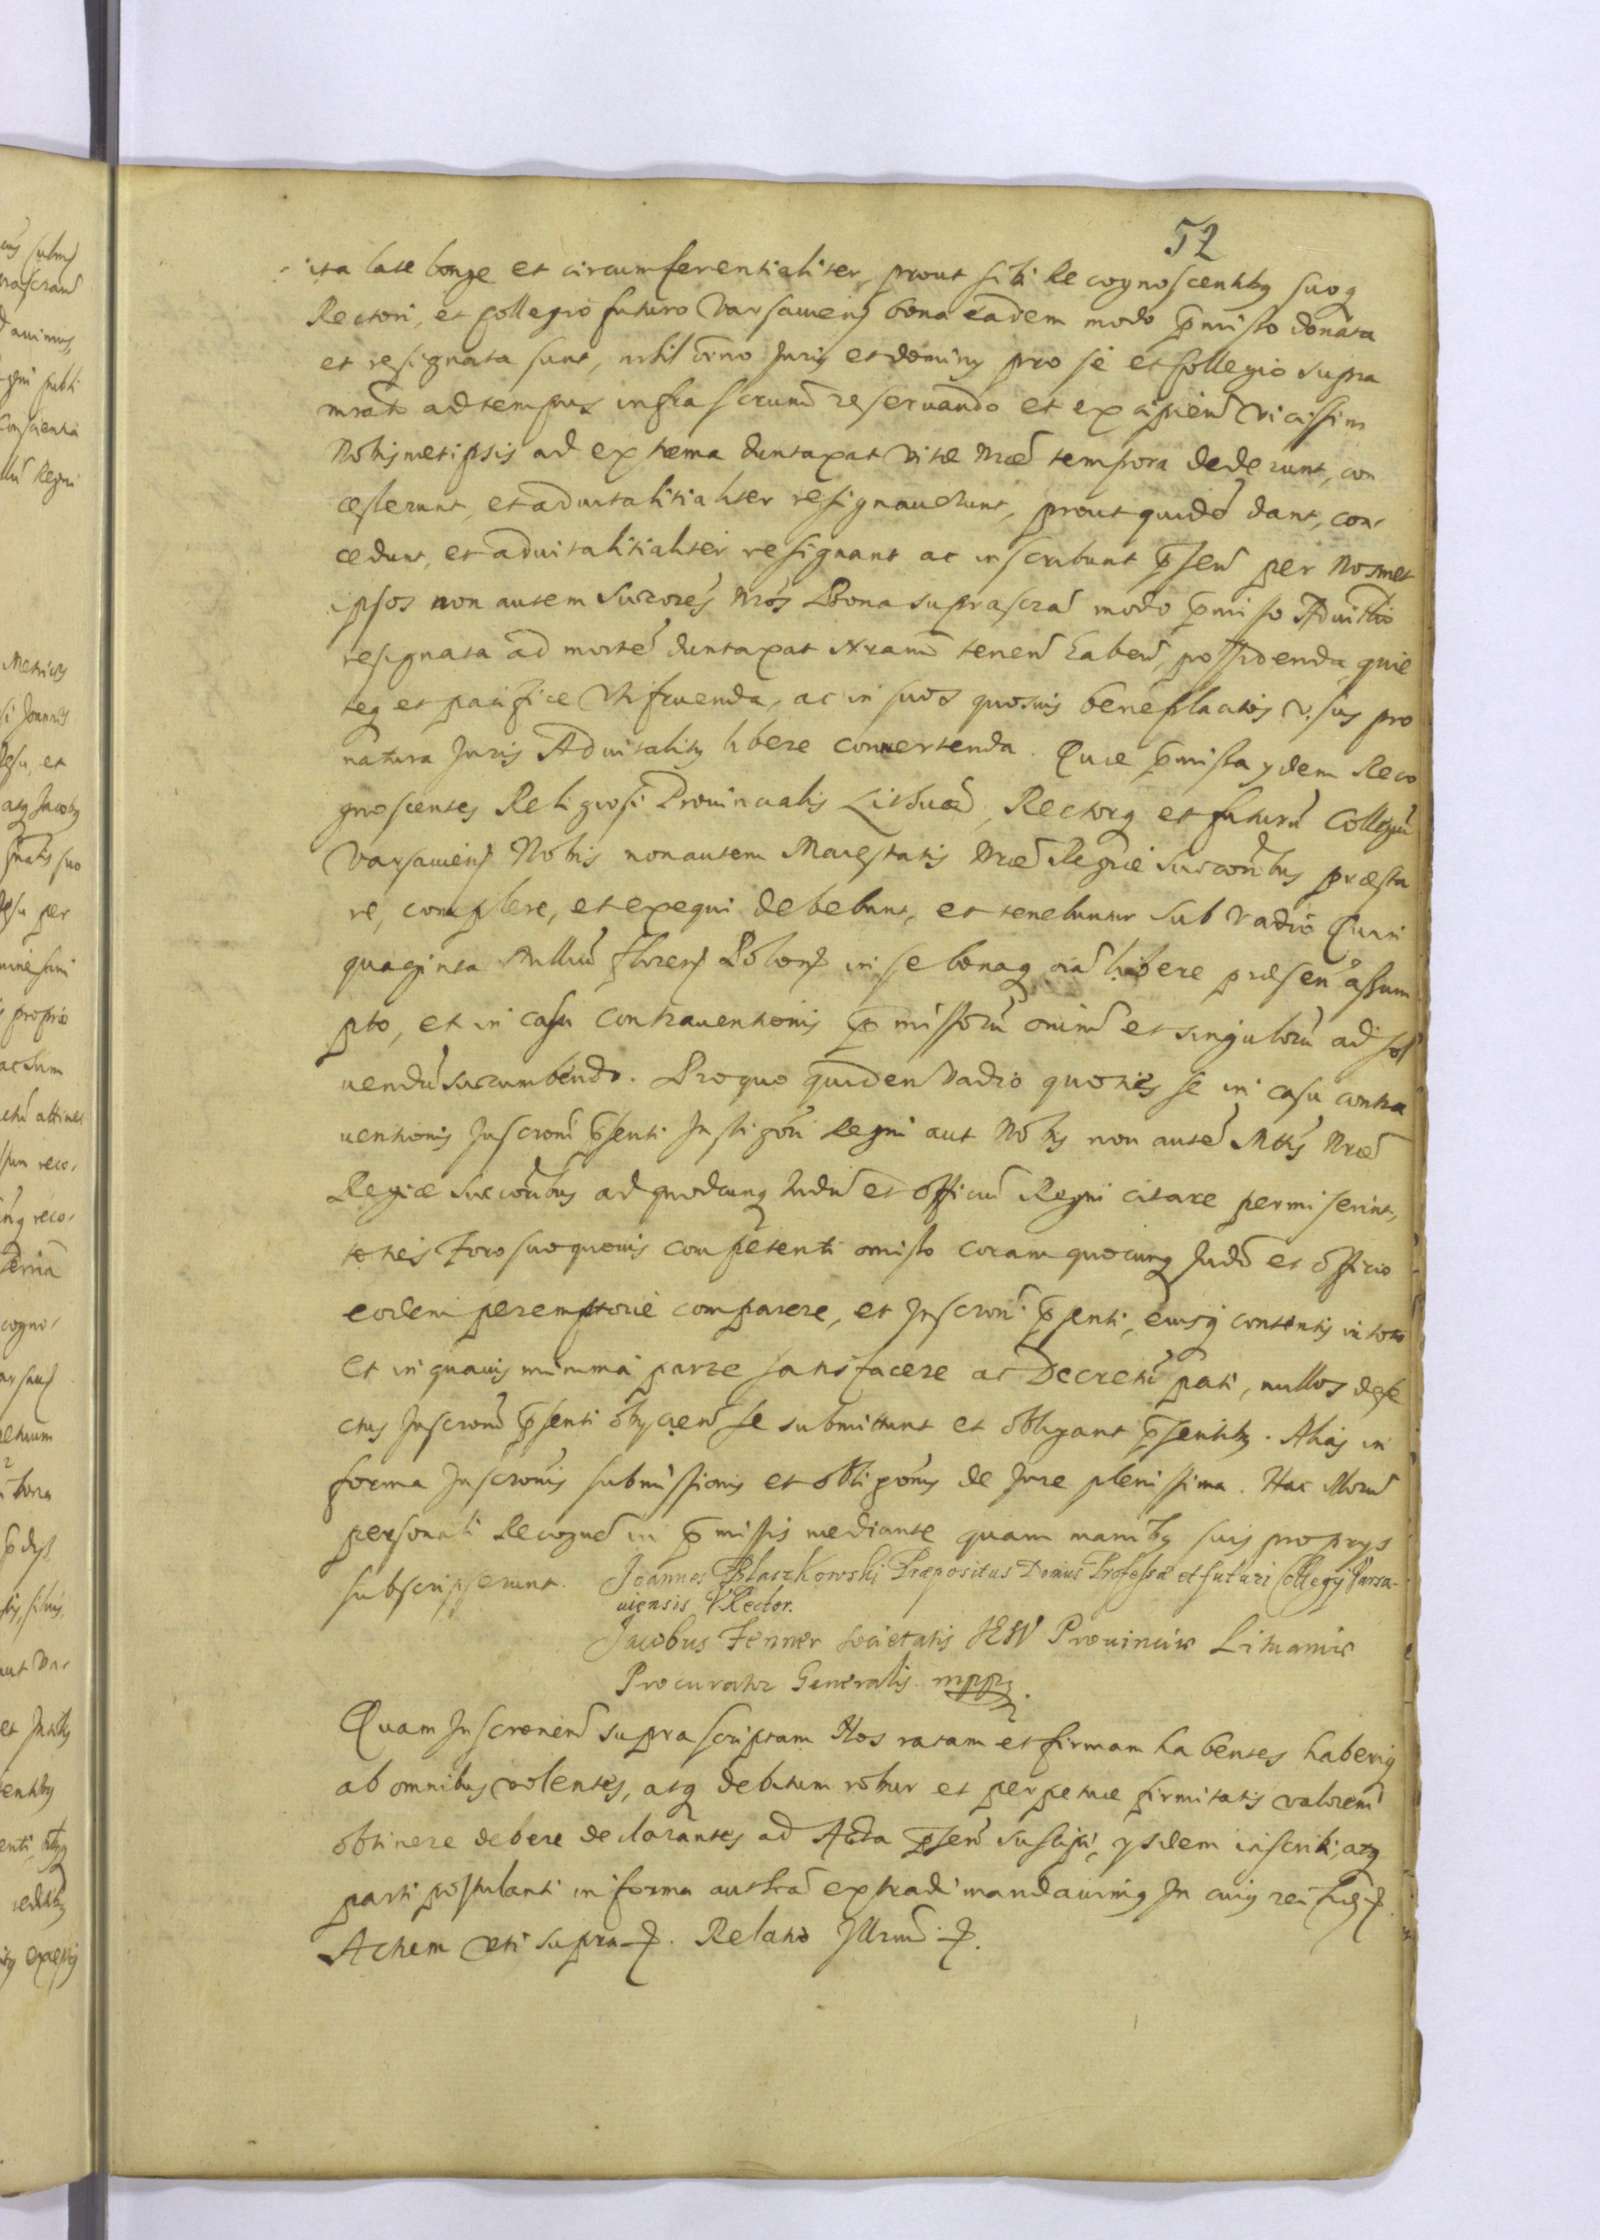 52
ita late longe et circumferentialiter, prout sibi Recognoscentibꝫ suoqꝫ
Rectori, et Collegio futuro Varsaviensi bona eadem modo p̄misso donata
et resignata sunt, nihil om̄no Juris et dominij pro se et Collegio supra
mrāto ad tempus infrascrum̄ reservando et excipien̄ vicissim
Nobismetipsis ad extrema duntaxat vitæ Nræ tempora dederunt, con
cesserunt, et advitalitialiter resignaverunt, prout quidē dant, con-
cedunt, et advitalitialiter resignant ac inscribunt p̄sen̄ per Nosmet
ipsos non autem Succōres Nrōs Bona suprascrā modo p̄misso Advitt̄io
resignata ad mortē duntaxat Nram̄ tenen̄ haben̄, possidenda, quie
teqꝫ et pacifice Utifruenda, ac in suos quosvis beneplacitos usus pro
natura Juris Advitalitij libere convertenda. Quæ p̄missa ydem Reco
gnoscentes Religiosi Provincialis Lithuæ, Rectorqꝫ et futurū Collegiū
Varsaviens Nobis non autem Maiestatis Nræ Regiæ Succōribus præsta
re, complere, et exequi debebunt, et tenebuntur sub vadio Quin
quaginta Milliū floren Polon in se bonaqꝫ oīa libere præsen̄ assum
pto, et in casu contraventionis p̄missorū omniū et singulorū ad sol
vendū succumbendo. Pro quo quidem Vadio quoties se in casu contra
ventionis Inscrōni p̄senti Instigōri Regni aut Nobis non autē Mttis Nræ
Regiæ Succōribus ad quodcunqꝫ Iudiū et officiū Regni citare permiserint,
toties Foro suo quovis competenti omisso coram quocunqꝫ Judō et officio
eodem peremptorie comparere, et Inscrōni p̄senti, eiusqꝫ contentis in toto
et in quavis minima parte satisfacere ac Decretū pati, nullos defe
ctus Inscrōni p̄senti obijcien̄ se submittunt et obligant p̄sentibꝫ. Alias in
forma Inscrōnis submissionis et obligōnis de Jure plenissima. Hac Morū
personali Recogne in p̄missis mediante quam manibꝫ suis proprys
subscripserunt. Joannes Blaszkowski Præpositus Domus Professæ et futuri Collegij Varsa-
viensis VRector.
Jacobus Fenner Societatis JESV Provinciæ Lituaniæ
Procurator Generalis mppꝫ.
Quam Inscrōnem suprascriptam Nos ratam et firmam habentes haberiqꝫ
ab omnibus volentes, atqꝫ debitum robur et perpetuæ firmitatis valorem
obtinere debere declarantes ad Acta p̄sen̄ suscipi, ysdem inscribi, atqꝫ
parti postulanti in forma authcā extradi mandavimqꝫ In cuiqꝫ rei fidem
Actum uti supra. Relatio Illrmi